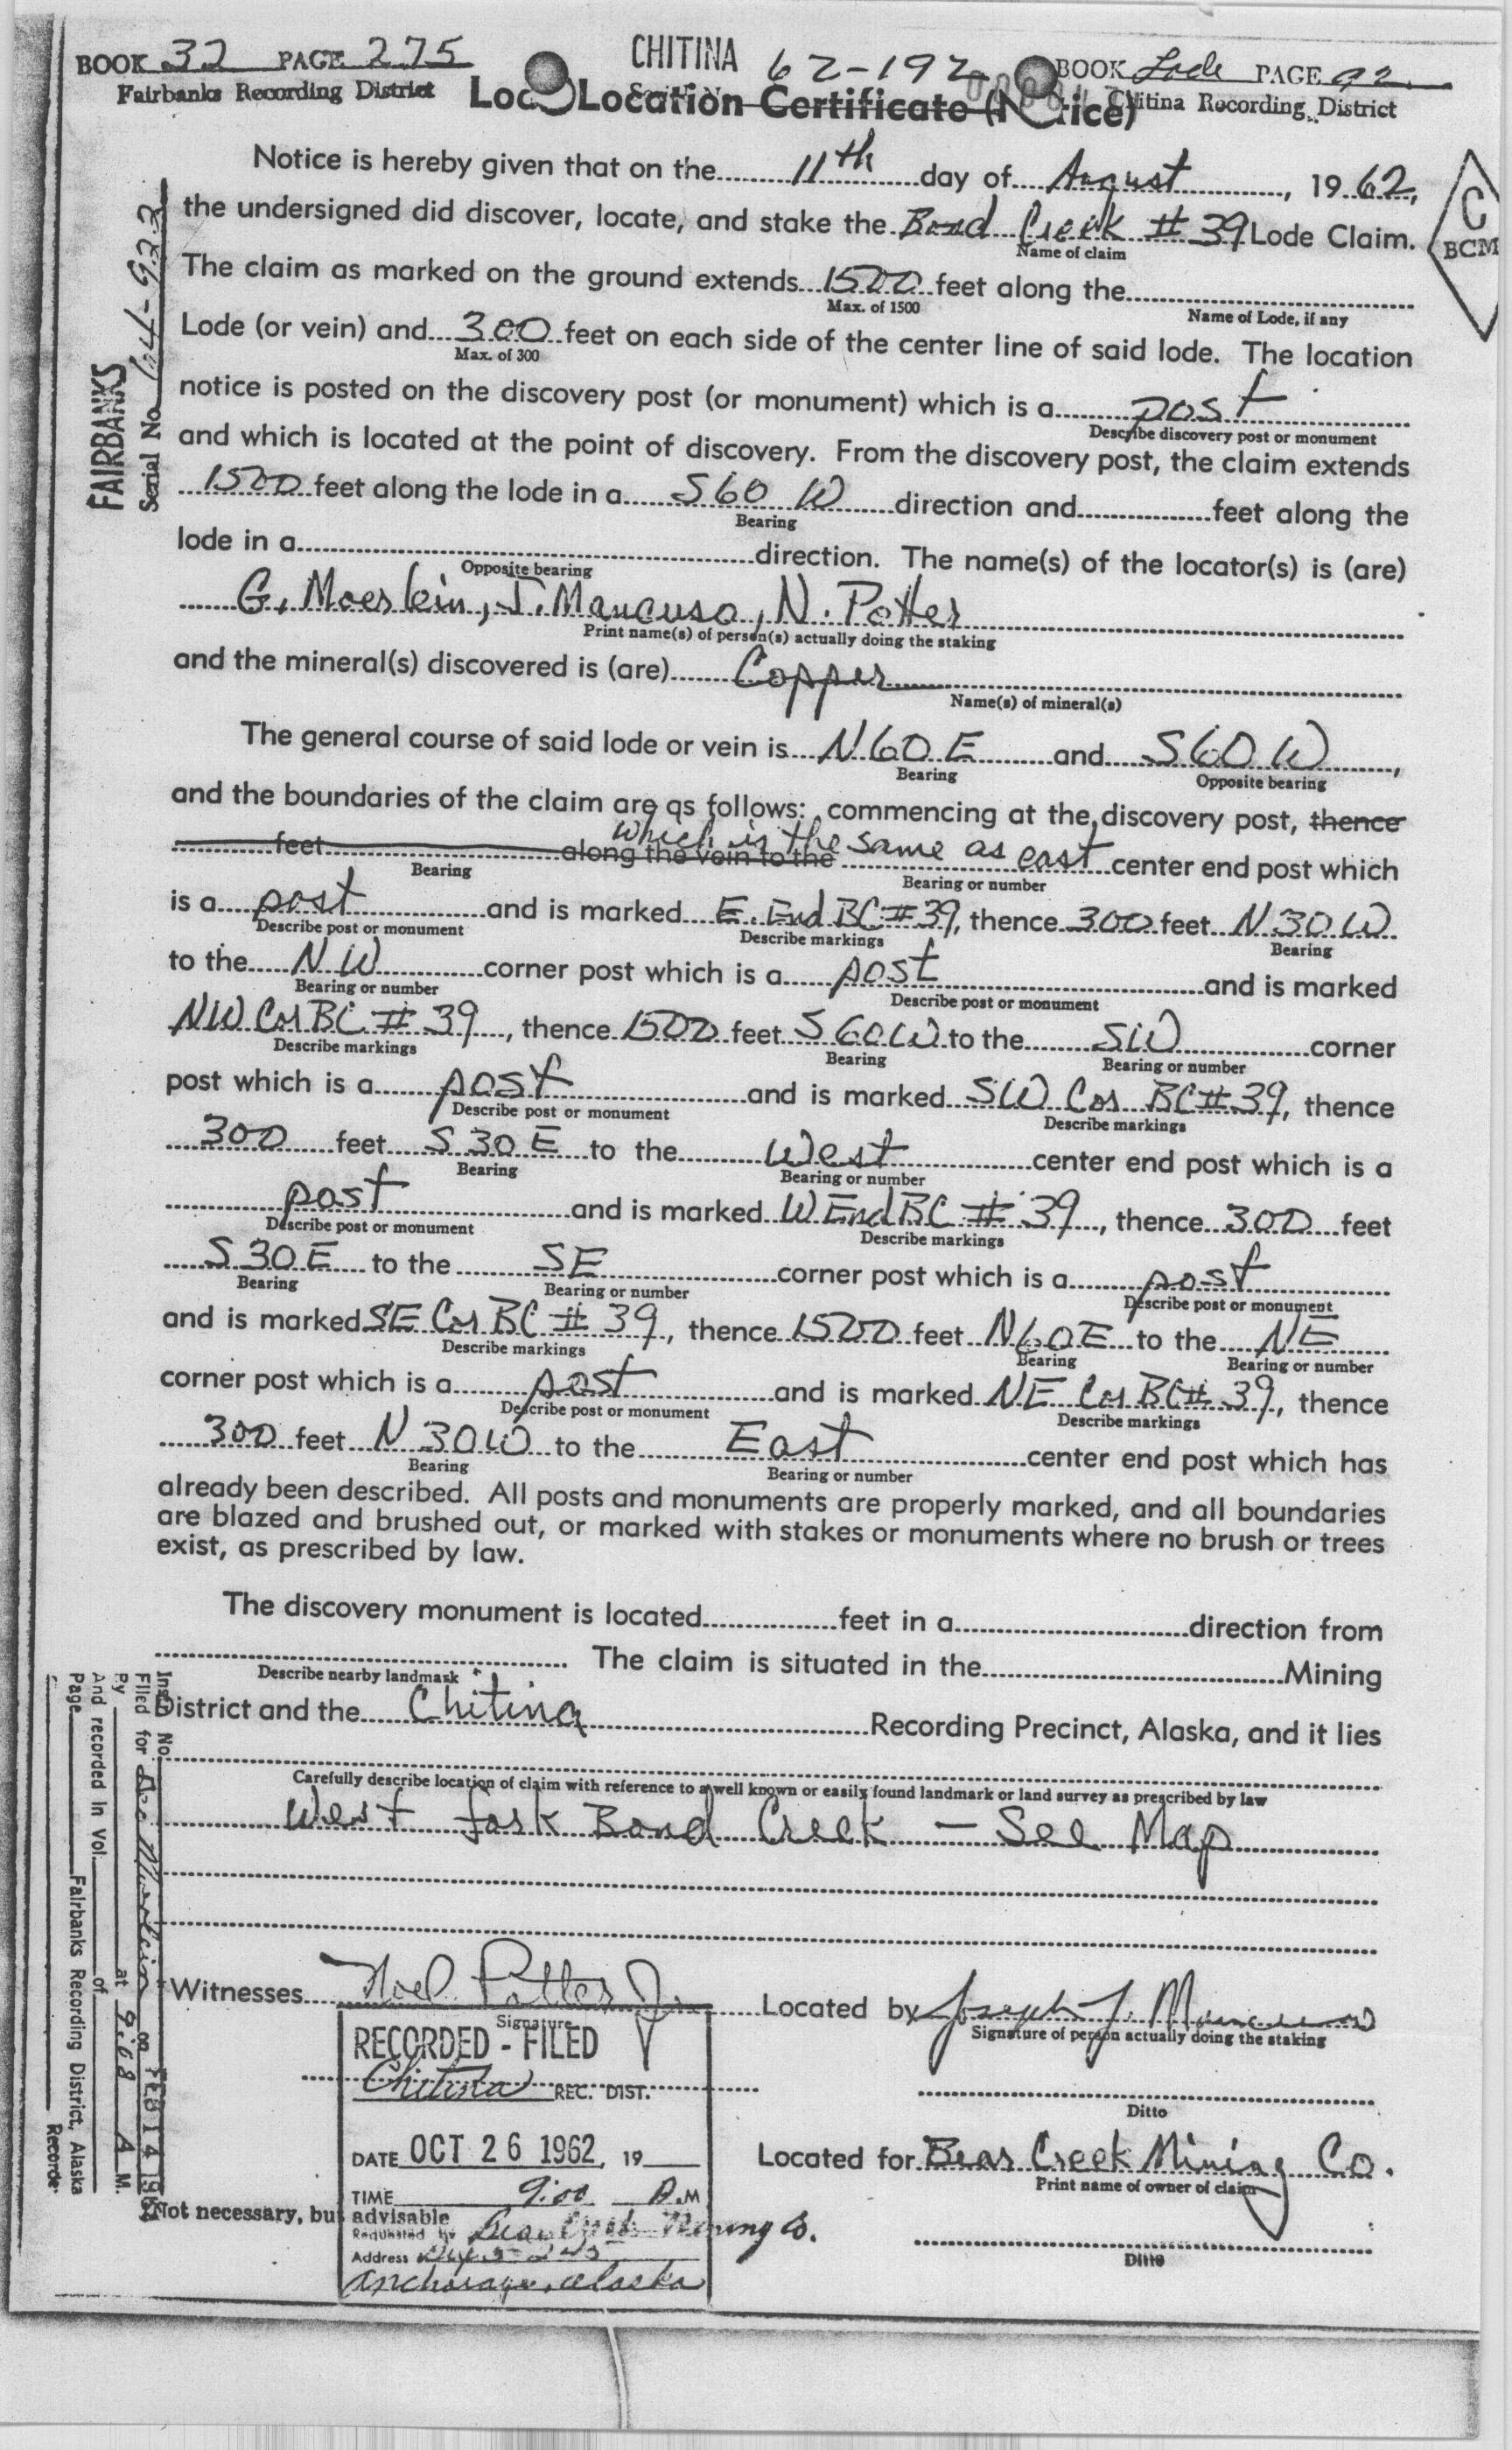 BOOK 32 PAGE 275
Fairbanks Recording District
CHITINA 62-192
BOOK Lode PAGE 92
Chitina Recording District
Location Certificate
C
BCM
FAIRBANKS
Serial No. 64-922
Notice is hereby given that on the 11th day of August, 1962,
the undersigned did discover, locate, and stake the Bond Creek # 39 Lode Claim.
Name of claim
The claim as marked on the ground extends 1500 feet along the
Max. of 1500 Name of Lode, if any
Lode (or vein) and 300 feet on each side of the center line of said lode. The location
Max. of 300
notice is posted on the discovery post (or monument) which is a post
Describe discovery post or monument
and which is located at the point of discovery. From the discovery post, the claim extends
1500 feet along the lode in a S 60 W direction and feet along the
Bearing
lode in a direction. The name(s) of the locator(s) is (are)
Opposite bearing
G. Moerlein, J. Mancuso, N. Potter
Print name(s) of person(s) actually doing the staking
and the mineral(s) discovered is (are) Copper
Name(s) of mineral(s)
The general course of said lode or vein is N 60 E and S 60 W,
Bearing Opposite bearing
and the boundaries of the claim are as follows: commencing at the discovery post, thence
feet along the vein to the which is the same as east center end post which
Bearing Bearing or number
is a post and is marked E. End BC # 39, thence 300 feet N 30 W
Describe post or monument Describe markings Bearing
to the NW corner post which is a post and is marked
Bearing or number Describe post or monument
NW Cor BC # 39, thence 1500 feet S 60 W to the SW corner
Describe markings Bearing Bearing or number
post which is a post and is marked SW Cor BC # 39, thence
Describe post or monument Describe markings
300 feet S 30 E to the West center end post which is a
Bearing Bearing or number
post and is marked W End BC # 39, thence 300 feet
Describe post or monument Describe markings
S 30 E to the SE corner post which is a post
Bearing Bearing or number Describe post or monument
and is marked SE Cor BC # 39, thence 1500 feet N 60 E to the NE
Describe markings Bearing Bearing or number
corner post which is a post and is marked NE Cor BC # 39, thence
Describe post or monument Describe markings
300 feet N 30 W to the East center end post which has
Bearing Bearing or number
already been described. All posts and monuments are properly marked, and all boundaries
are blazed and brushed out, or marked with stakes or monuments where no brush or trees
exist, as prescribed by law.
The discovery monument is located feet in a direction from
The claim is situated in the Mining
Describe nearby landmark
District and the Chitina Recording Precinct, Alaska, and it lies
Carefully describe location of claim with reference to a well known or easily found landmark or land survey as prescribed by law
West fork Bond Creek – See Map
Inst. No.
Filed for Geo Moerlein
By at 9:08 A M.
And recorded in Vol. of
Page Fairbanks Recording District, Alaska
Witnesses Noel Potter Jr.
Signature
Located by Joseph J. Mancuso
Signature of person actually doing the staking
Ditto
Located for Bear Creek Mining Co.
Print name of owner of claim
Ditto
RECORDED - FILED
Chitina REC. DIST.
DATE OCT 26 1962, 19
TIME 9:00 A.M
Not necessary, but advisable
Requested by Bear Creek Mining Co.
Address
Anchorage, Alaska